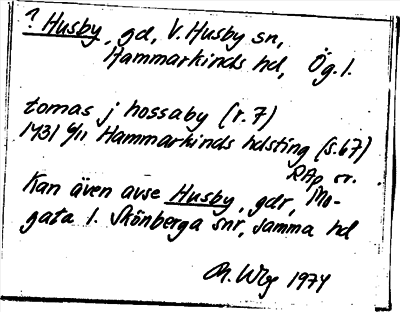 ? Husby, gd, V. Husby sn,
Hammarkinds hd, Ög. l.
tomas j hossaby (r. 7)
1431 6/11 Hammarkinds hdsting (s. 67)
RAp or.
Kan även avse Husby, gdr, Mo-
gata l. Skönberga snr, samma hd
1974